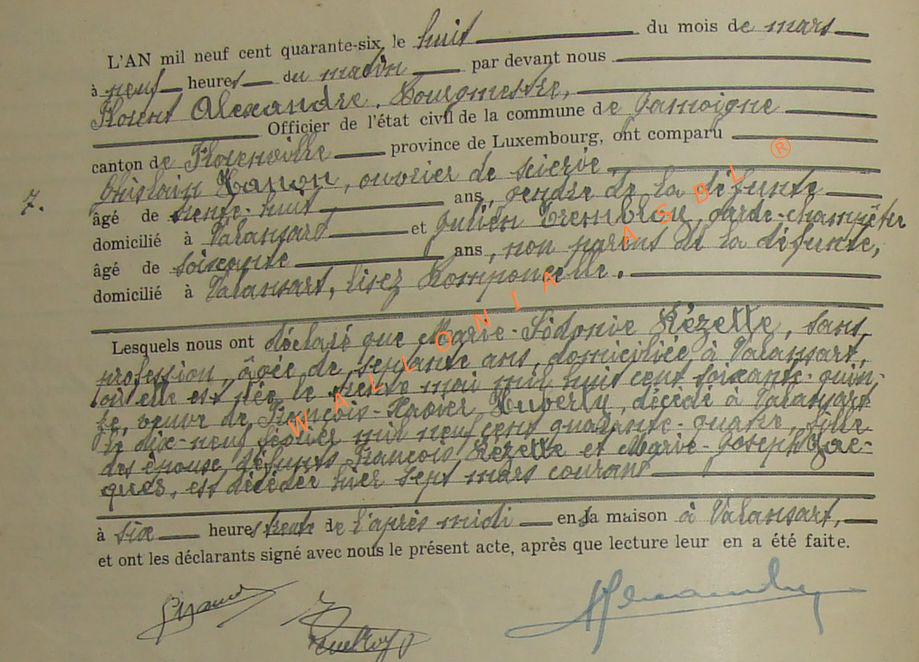 L'AN mil neuf cent quarante-six, le huit du mois de mars
à neuf heures du matin par devant nous
Florent Alexandre, Bourgmestre,
Officier de l'état civil de la commune de Jamoigne
canton de Florenville province de Luxembourg, ont comparu
Ghislain Hanon, ouvrier de scierie
7. âgé de trente-huit ans, gendre de la défunte
domicilié à Valansart et Julien Tremblou, garde-champêtre
âgé de soixante ans, non parent de la défunte,
domicilié à Valansart, lisez Romponcelle.
Lesquels nous ont déclaré que Marie-Sidonie Rézette, sans
profession, âgée de septante ans, domiciliée à Valansart,
où elle est née le trente mai mil huit cent soixante-quin-
ze, veuve de François-Xavier Huberty, décédé à Valansart
le dix-neuf février mil neuf cent quarante-quatre, fille
des époux défunts François Rézette et Marie-Joseph Jac-
ques, est décédée hier sept mars courant
à six heures trente de l'après midi en sa maison à Valansart,
et ont les déclarants signé avec nous le présent acte, après que lecture leur en a été faite.
WALLONIA ASBL ®